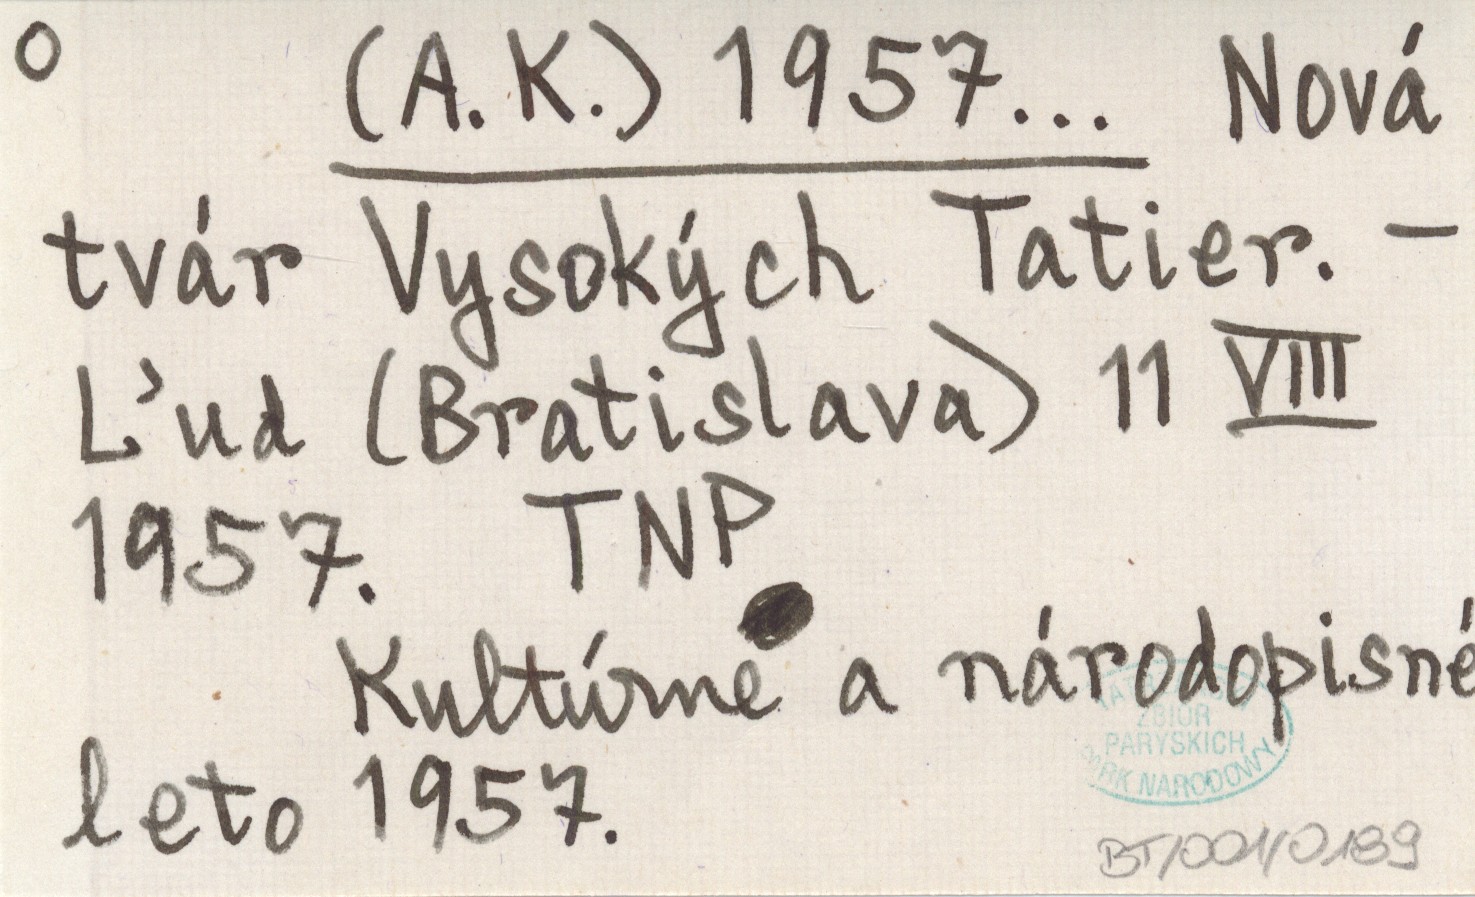 o (A.K.) 1957... Nová
tvár Vysokých Tatier. –
L'ud (Bratislava) 11 VIII
1957. TNP
Kultúrne a národopisné
leto 1957.
ZBIÓR
PARYSKICH
PARK NARODOWY
BT/001/0189